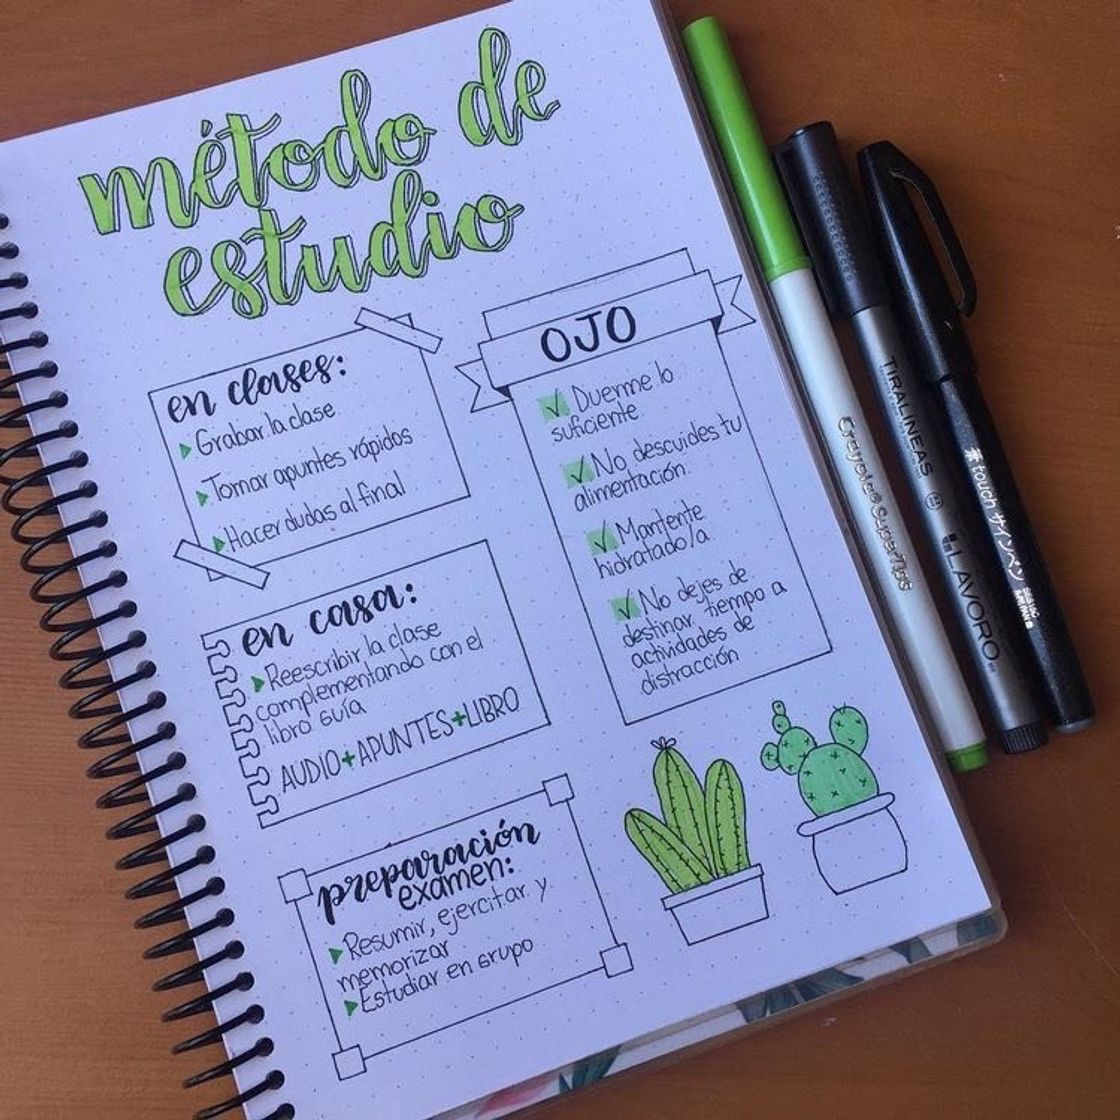 método de
estudio
en clases:
Grabar la clase
Tomar apuntes rápidos
Hacer dudas al final
en casa:
Reescribir la clase
complementando con el
libro guía
AUDIO+APUNTES+LIBRO
preparación
examen:
Resumir, ejercitar y
memorizar
Estudiar en grupo
OJO
Duerme lo
suficiente
No descuides tu
alimentación
Mantente
hidratado/a
No dejes de
destinar tiempo a
actividades de
distracción
Crayola® SuperTips
TIRALINEAS
LAVORO
touch サインペン